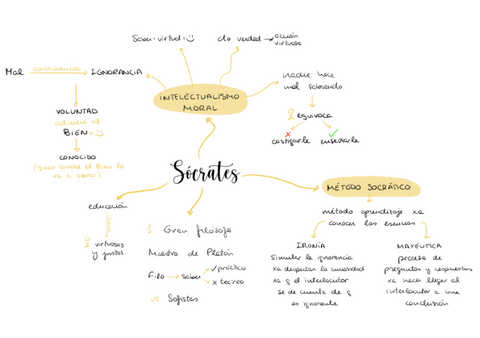 Saber = virtud = :)
cto verdad → acción
virtuosa
Mal consecuencia IGNORANCIA
INTELECTUALISMO
MORAL
nadie hace
mal sabiendo
equivoca
castigarle enseñarle
VOLUNTAD
adhiere al
BIEN = :)
CONOCIDO
(quien conoce el Bien lo
va a hacer)
Sócrates
educación
virtuosos
y justos
1: Gran filósofo
Maestro de Platón
Filo → saber práctico
x técnico
vs Sofistas
MÉTODO SOCRÁTICO
método aprendizaje xa
conocer las esencias
IRONÍA
Simular la ignorancia
xa despertar la curiosidad
xa q el interlocutor
se dé cuenta de q
es ignorante
MAYÉUTICA
proceso de
preguntas y respuestas
xa hacer llegar al
interlocutor a una
conclusión